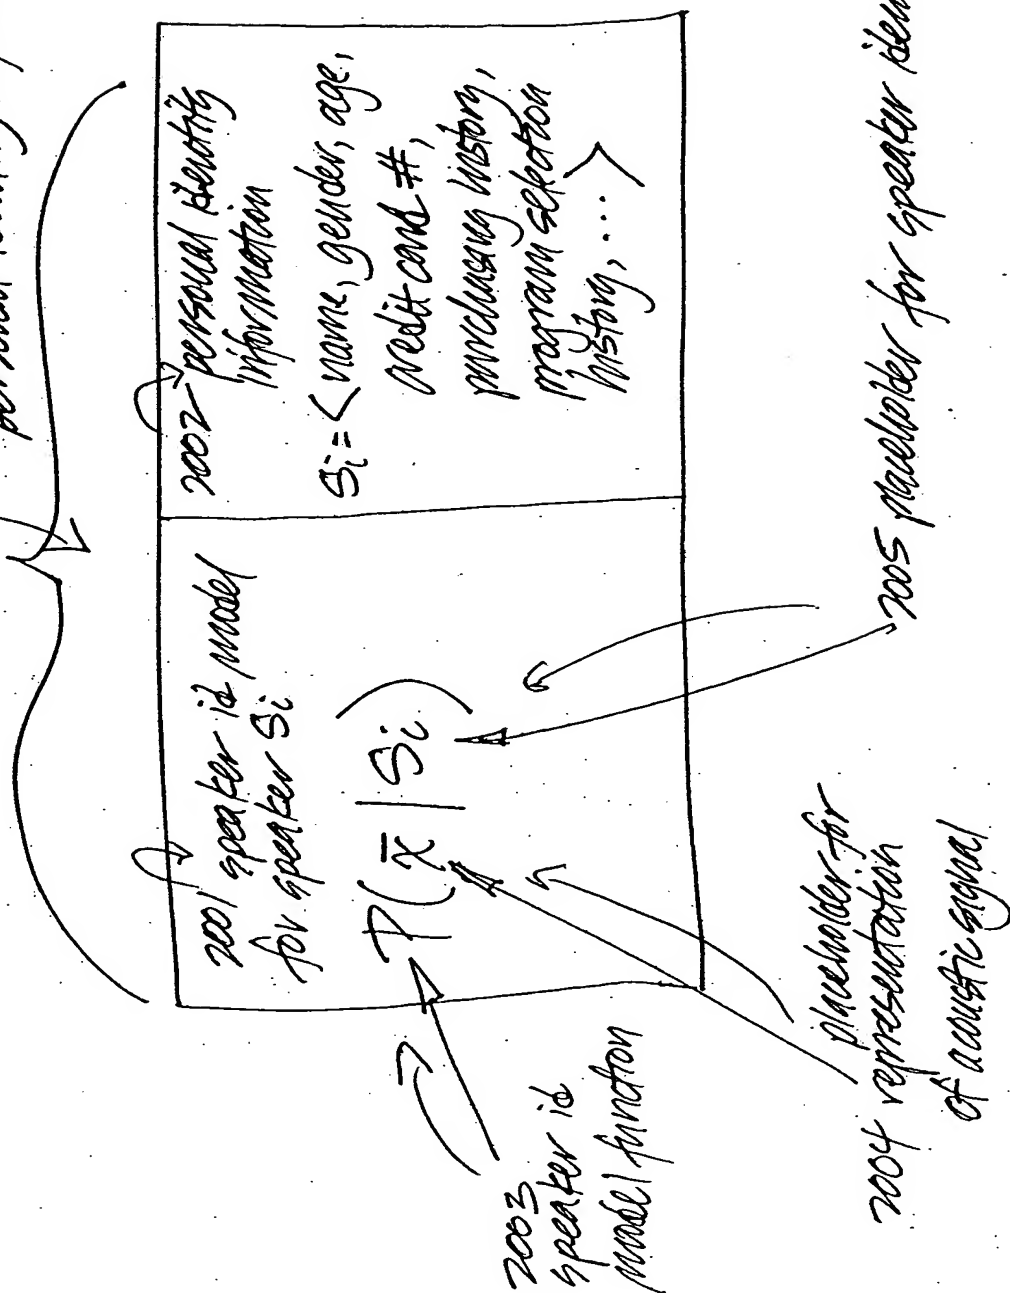 2001 speaker id model
for speaker Si
P(x̄ | Si)
2002 personal identity
information
Si = < name, gender, age,
credit card #,
purchasing history,
program selection
history, ... >
2003
speaker id
model function
placeholder for
2004 representation
of acoustic signal
2005 placeholder for speaker